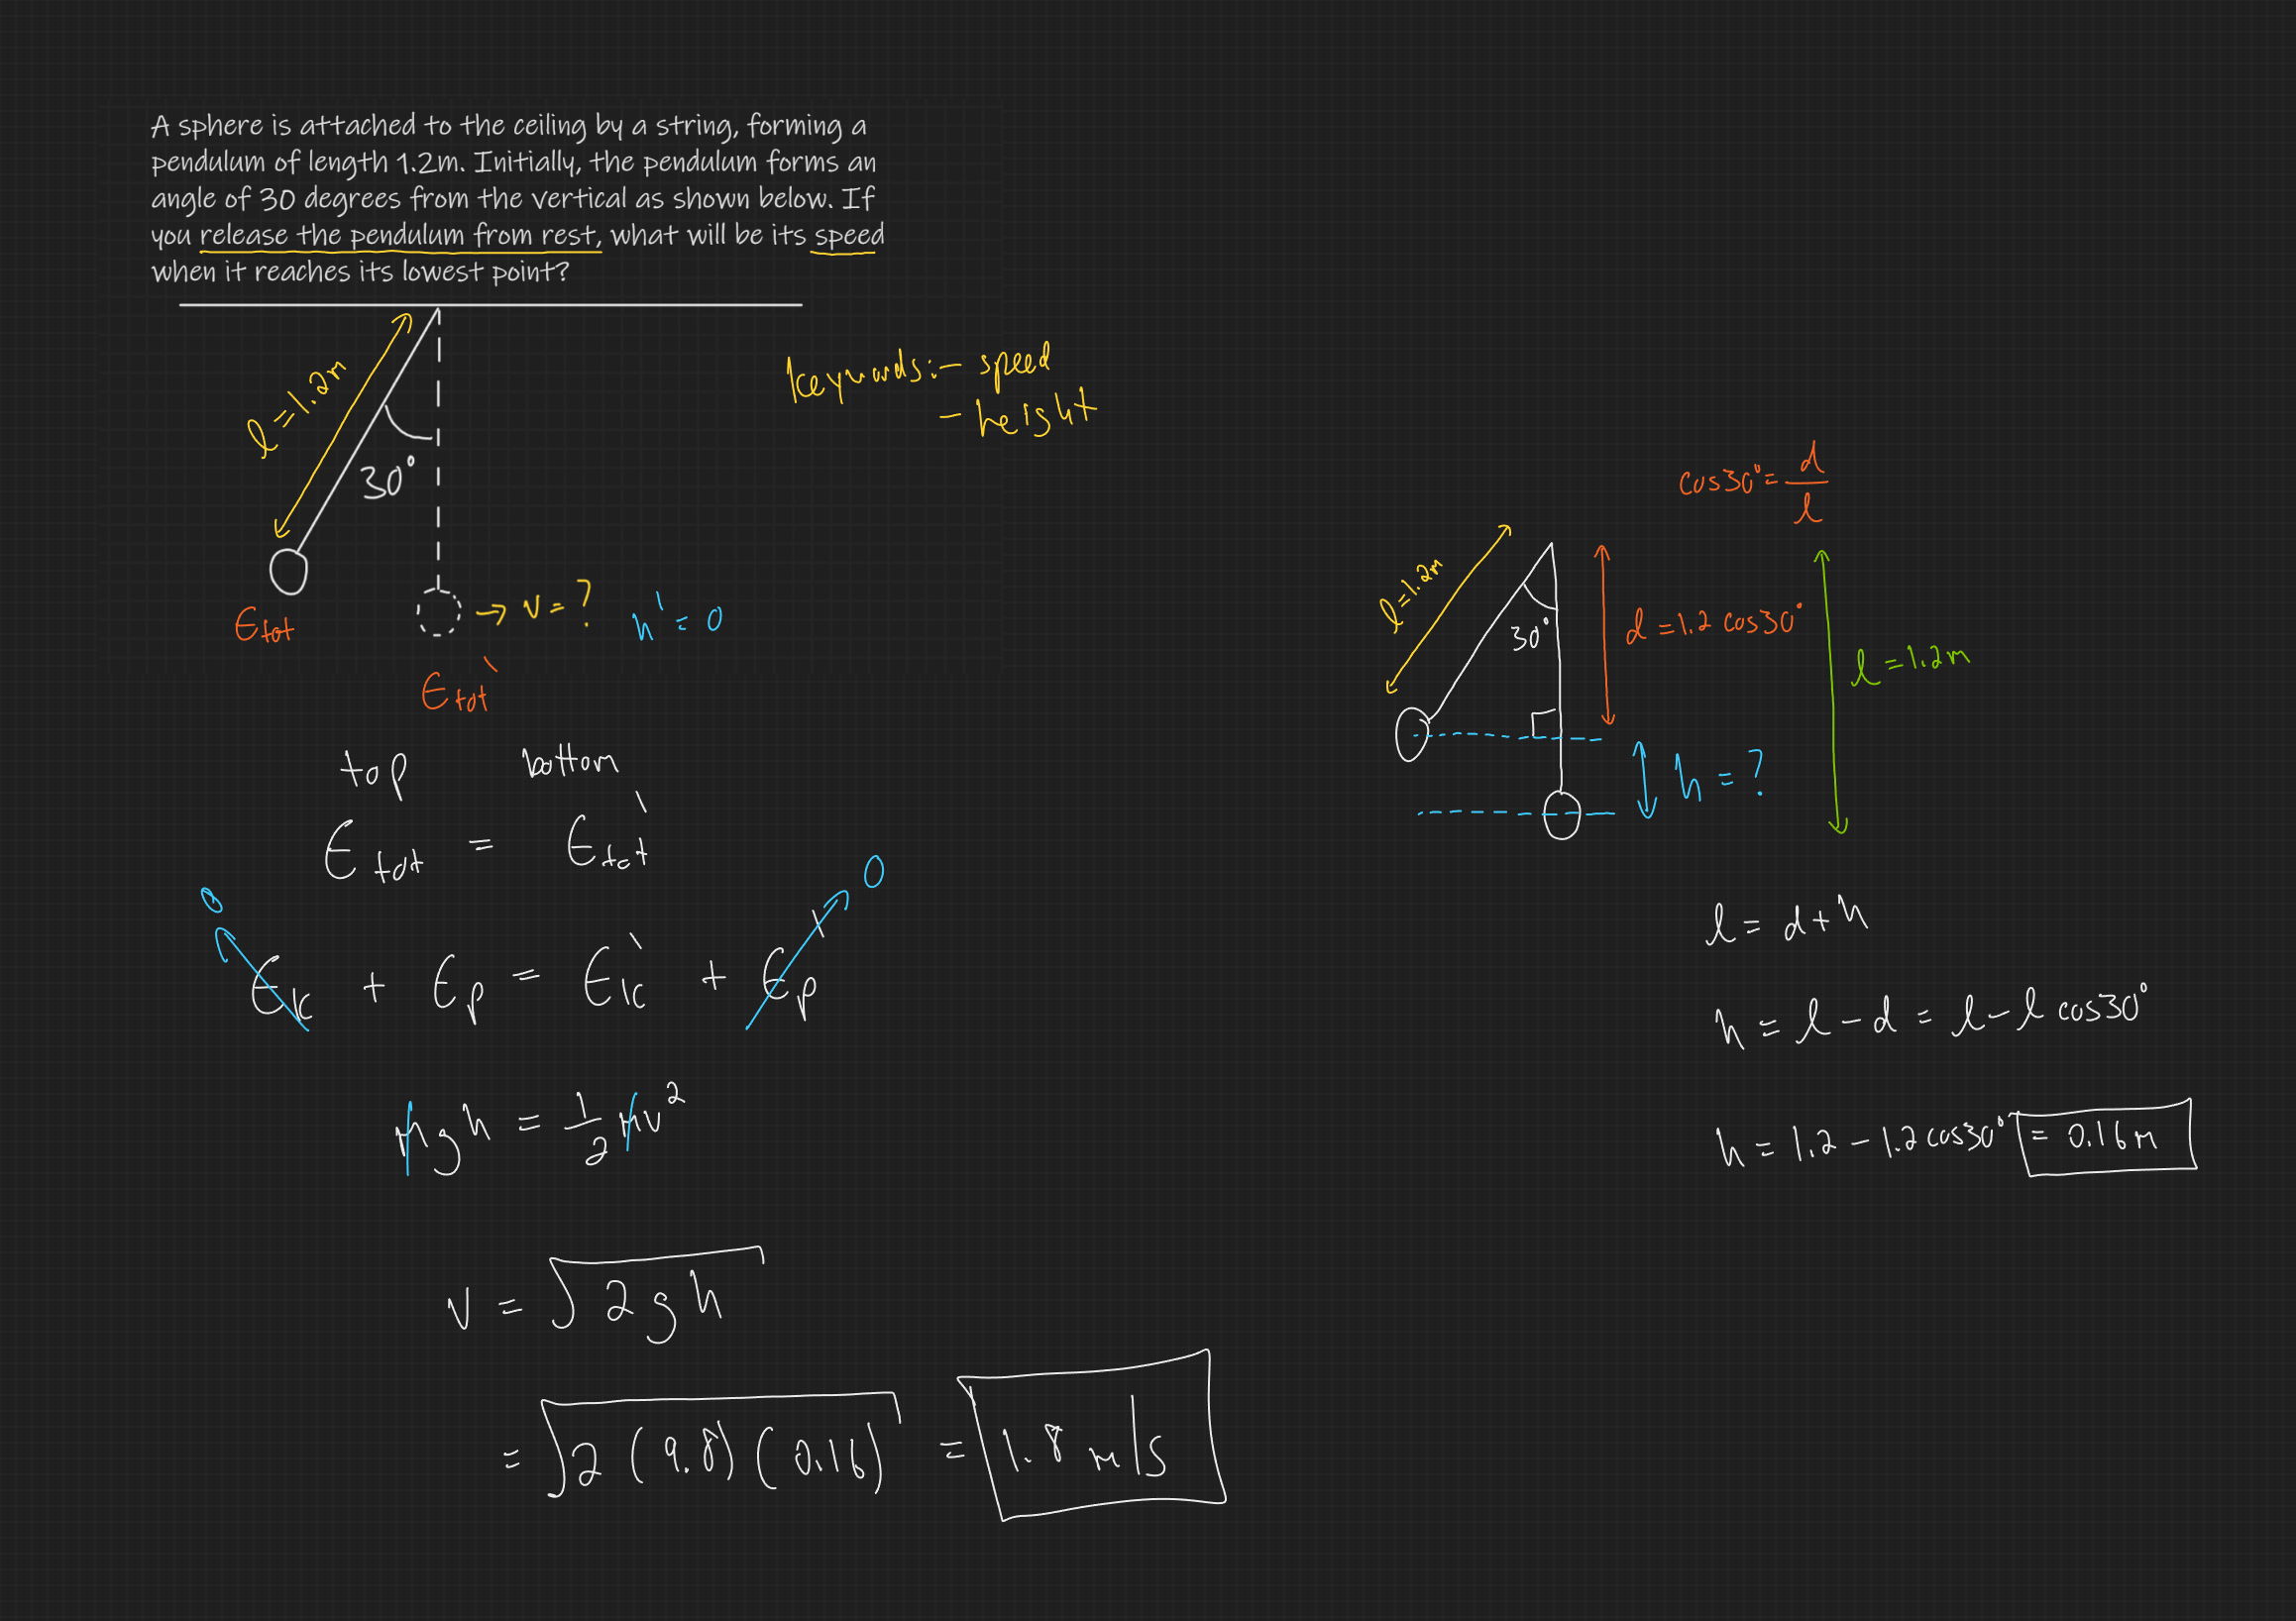 A sphere is attached to the ceiling by a string, forming a
pendulum of length 1.2m. Initially, the pendulum forms an
angle of 30 degrees from the vertical as shown below. If
you release the pendulum from rest, what will be its speed
when it reaches its lowest point?
l = 1.2m
30°
keywords: - speed
- height
E_tot
→ v = ?
h' = 0
E_tot'
top bottom
E_tot = E_tot'
0 0
E_k + E_p = E_k' + E_p'
mgh = 1/2 mv²
v = √2gh
= √2(9.8)(0.16) = 1.8 m/s
cos30° = d/l
l = 1.2m
30°
d = 1.2 cos30°
l = 1.2m
h = ?
l = d + h
h = l - d = l - l cos30°
h = 1.2 - 1.2 cos30° = 0.16m